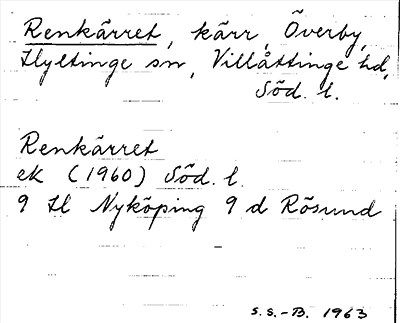 Renkärret, kärr, Överby,
Hyltinge sn, Villåttinge hd,
Söd. l.
Renkärret
ek (1960) Söd. l.
9 H Nyköping 9 d Rösund
S.S.-B. 1963